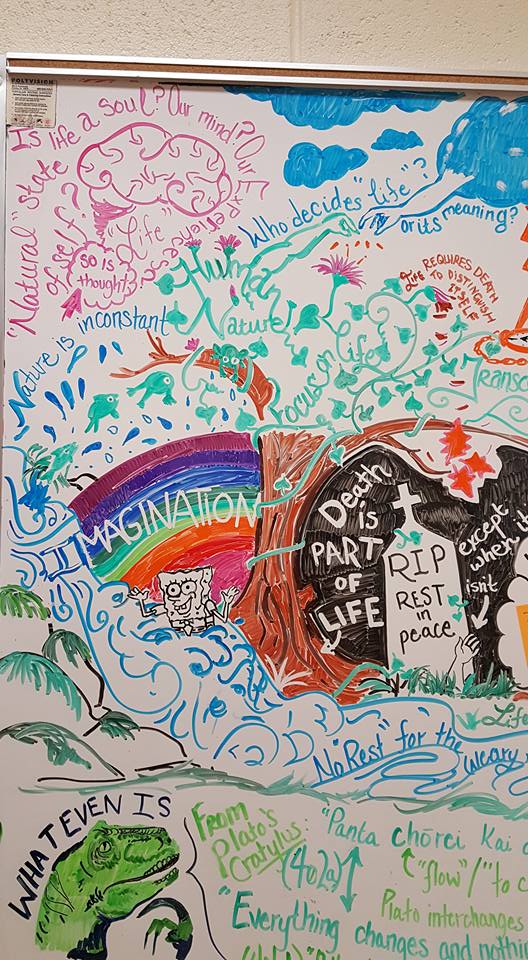 POLYVISION
Is life a soul? Our mind? Our Experiences?
"Natural" state of self?
"Life"
SO IS thought?
Who decides "life"?
or its meaning?
Human Nature
Nature is inconstant
Focus on life
LIFE REQUIRES DEATH
TO DISTINGUISH
ITSELF
IMAGINATION
Death
is
PART
OF
LIFE
RIP
REST
in
peace
except
when
isn't
Life
"No Rest" for the weary
WHAT EVEN IS
From
Plato's
Cratylus:
(402a)
"Panta chōrei Kai
"flow"/"to
Plato interchanges
"Everything changes and